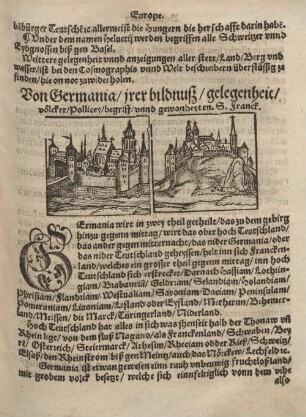 Europe.
bürger Teutschen: allermeist die Hungern die herschafft darin habē.
Vnder dem namen Heluetij werden begriffen alle Schweitzer vnnd
Eydgnossen biß gen Basel.
Weittere gelegenheit vnnd anzeigungen aller stett/Land/Berg vnd
wasser/ist bei den Cosmographis vnnd Welt beschreibern überflüssig zu
finden/hie on not zuwiderholen.
Von Germania/jrer bildnuß/gelegenheit/
völcker/Pollicey/begriff/vnnd gewonheyten. S. Franck.
Germania wirt in zwey theil getheilt/das zu dem gebirg
hinzu gegem mittag/wirt das ober hoch Teutschland/
das ander gegen mitternacht/das nider Germania/oder
das nider Teutschland geheyssen/helt inn sich Francken-
land/welches ein grosser theil gegen mittag/inn hoch
Teutschland sich erstrecket/Darnach Hassiam/Lothrin-
giam/Brabantiā/Geldriam/Selandiam/Holandiam/
Phrisiam/Flandriam/Westualiam/Saxoniam/Daciam/Peninsulam/
Pomeraniam/Liuoniam/Lyfland oder Eyfland/Mecherin/Behemer-
land/Meissen/die Marck/Türingerland/Niderland.
Hoch Teutschland hat alles in sich was jhensseit halb der Thonaw vñ
Rhein lige/von dem fluß Nagano/als Franckenland/Schwaben/Bey-
er/Osterreich/Steiermarck/Athesim/Rheciam odder Rieß/Schweitz/
Elsaß/den Rheinstrom biß gen Meintz/auch das Nörckew/Lechfeld ꝛc.
Germania ist etwan gewesen einn rauh vnbeuwig fruchtloß land/
mit grobem volck besetzt/welche sich einnfseltiglich vonn jhem vihe
also